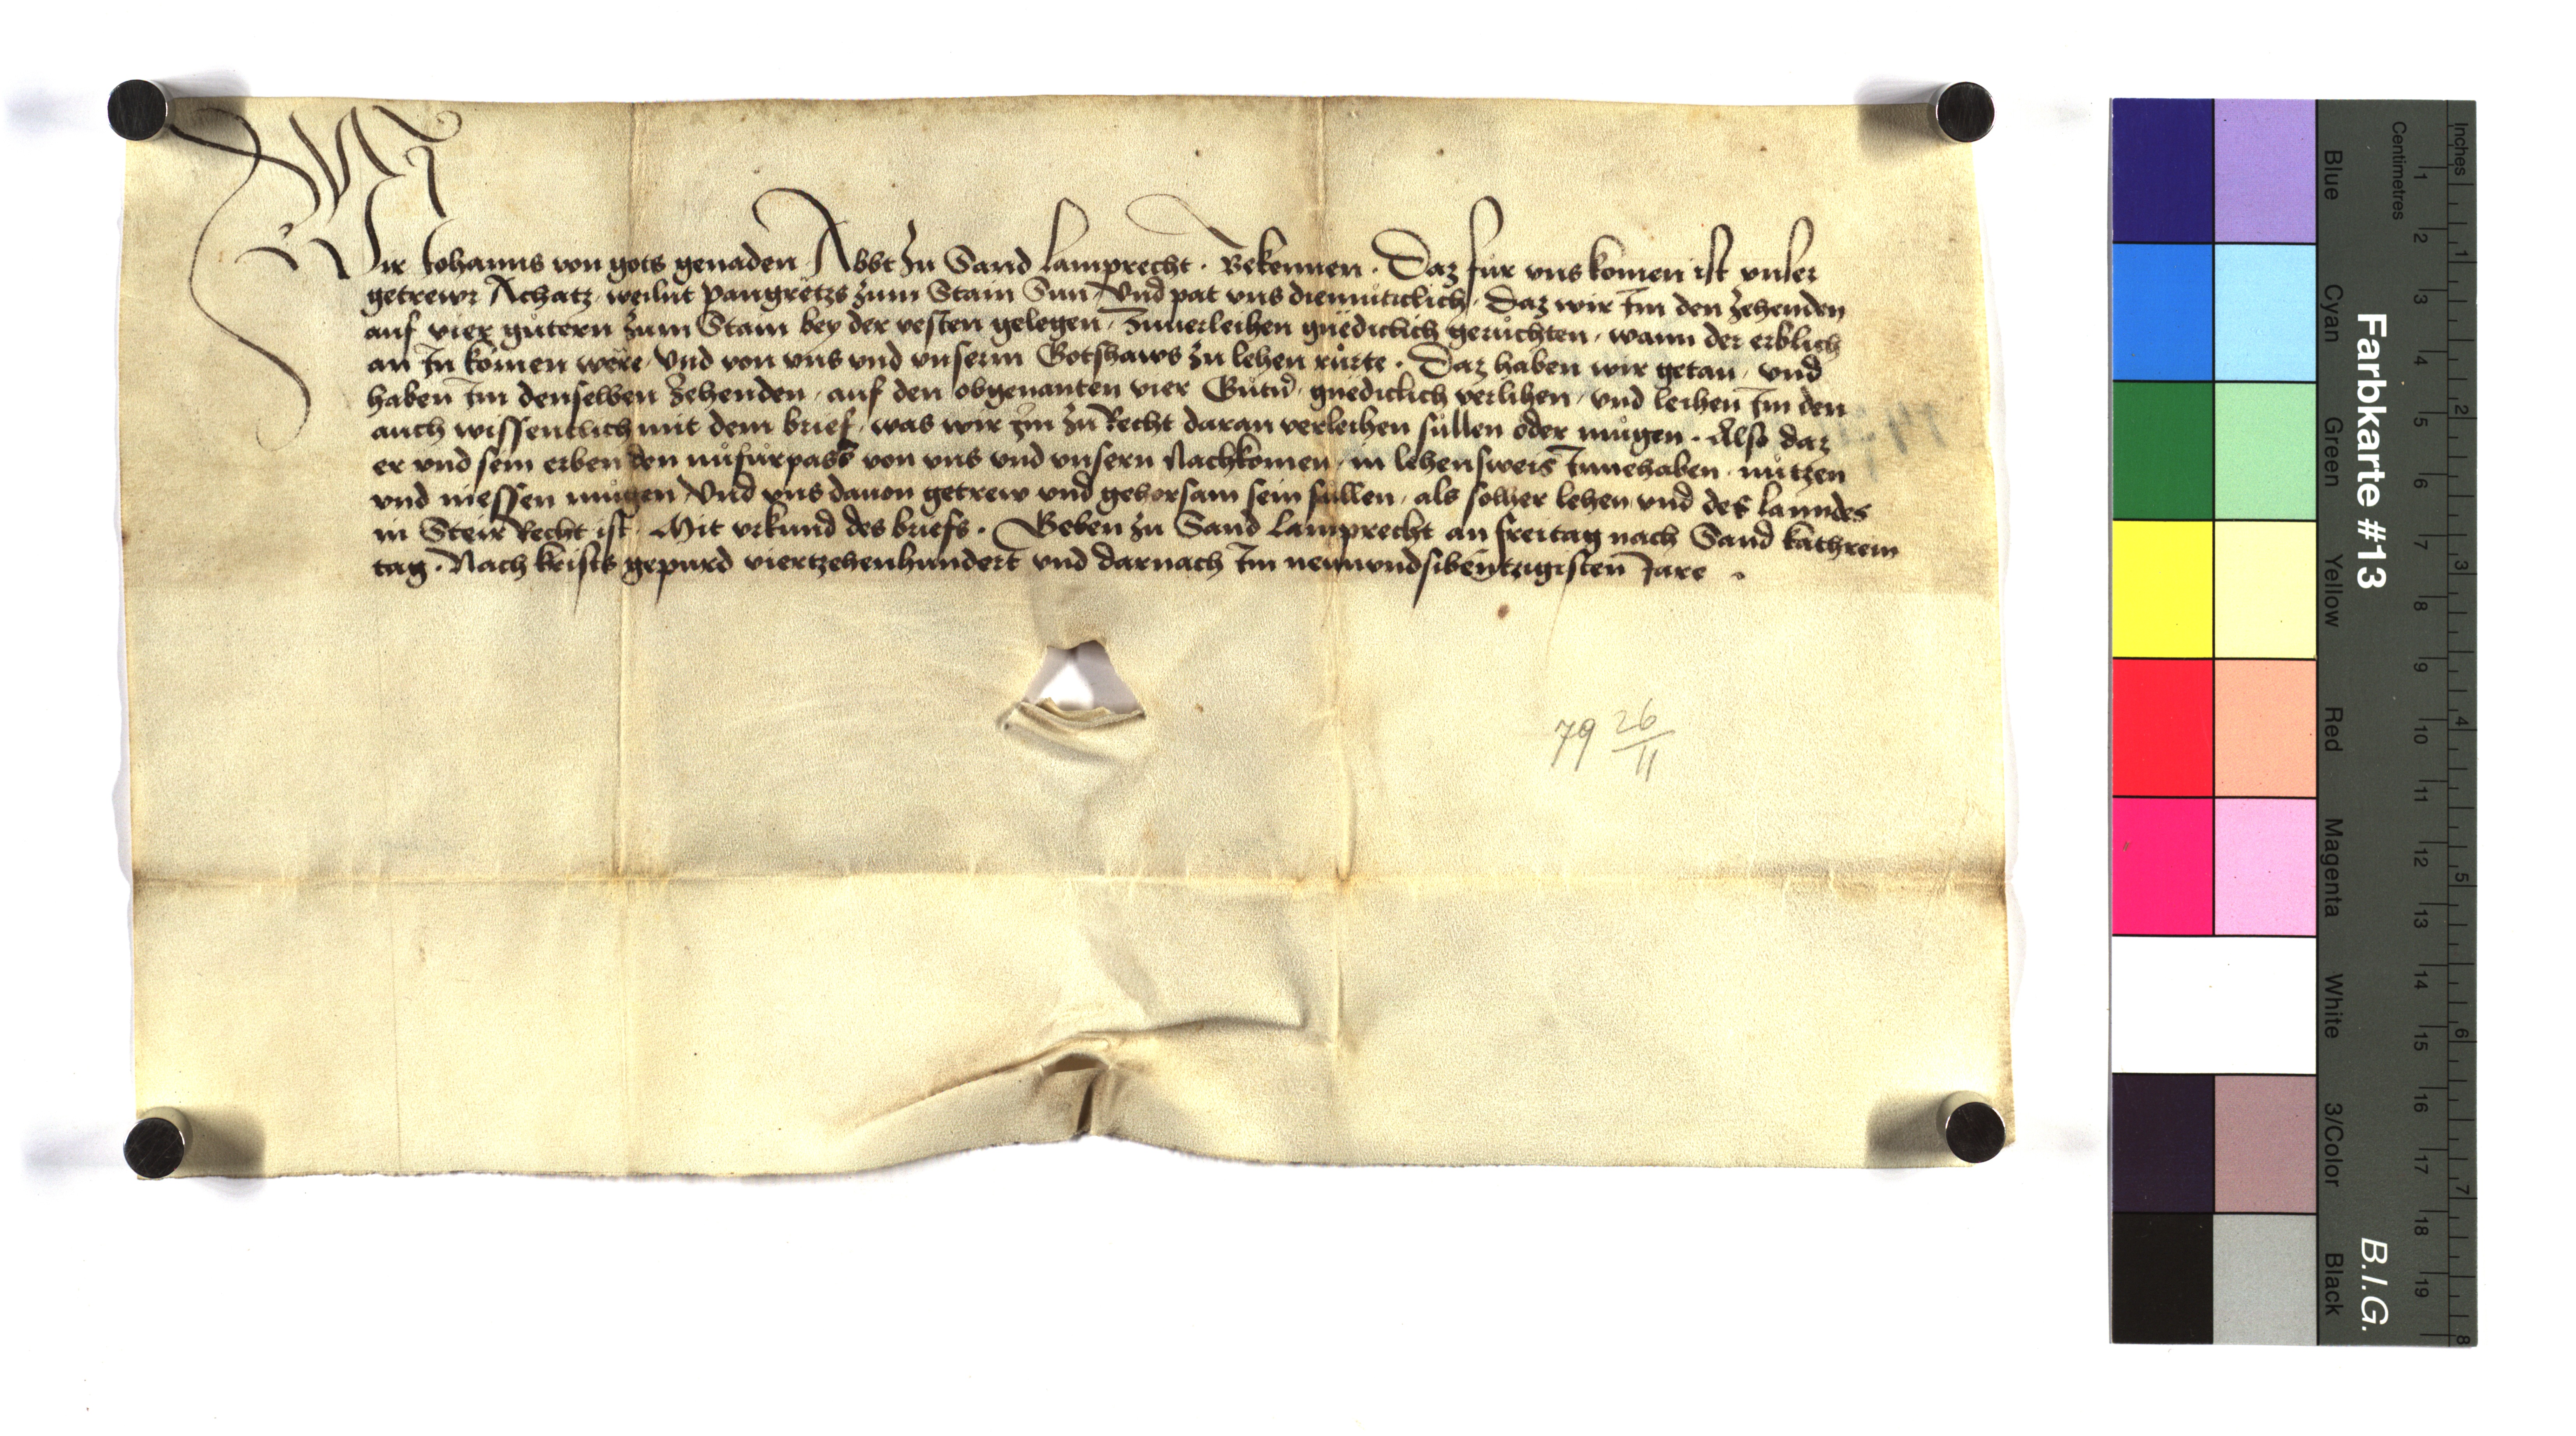 Wir Johanns von gots genaden Abbt zu Sand Lamprecht. Bekennen. Daz für vns komen ist vnser
getrewr Achatz, weilnt Pangrëtzs zum Stain Sun, Vnd pat vns diemüticlich, Daz wir Im den zehenden
auf vier gütern zum Stain bey der vesten gelegen, zuuerleihen gnëdiclich gerůchten, wann der erblich
an In komen wëre, Vnd von vns vnd vnserm Gotshaws zu lehen růrte. Daz haben wir getan, vnd
haben Im denselben zehenden, auf den obgenanten vier Gütern, gnediclich verlihen, vnd leihen Im den
auch wissentlich mit dem brief, was wir Im zu Recht daran verleihen süllen oder mügen. Also daz
er vnd sein erben den nu fürpass von vns vnd vnsern Nachkomen, in lehensweis Innehaben, nützen
vnd niessen mügen Vnd vns dauon getrew vnd gehorsam sein süllen, als solher lehen vnd des lanndes
in Steir Recht ist. Mit vrkund des briefs. Geben zu Sand Lamprecht an freitag nach Sand kathrein
tag. Nach krists gepurd viertzehenhundert vnd darnach Im newnvndsibentzigisten Jare.
79 26/11
Farbkarte #13 B.I.G.
Blue Cyan Green Yellow Red Magenta White 3/Color Black
Centimetres 1 2 3 4 5 6 7 8 9 10 11 12 13 14 15 16 17 18 19
Inches 1 2 3 4 5 6 7 8